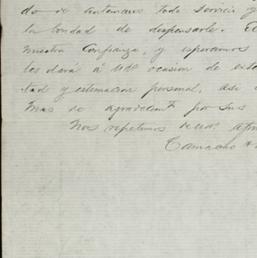 do de antemano todo servicio y
la bondad de dispensarle. El
nuestra Confianza, y esperamos
les dará á Uds ocasion de
tad y estimacion personal, asi
mas de agradecerle por sus
Nos repetimos de Uds afmos
Camacho